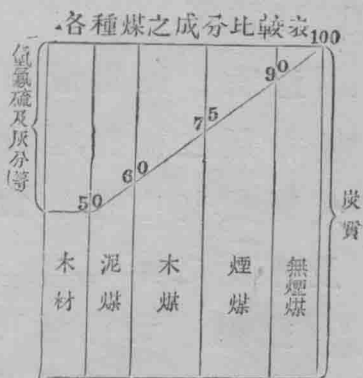 各種煤之成分比較表
100
90
75
60
50
氫氮硫及灰分等
炭質
木材
泥煤
木煤
煙煤
無煙煤